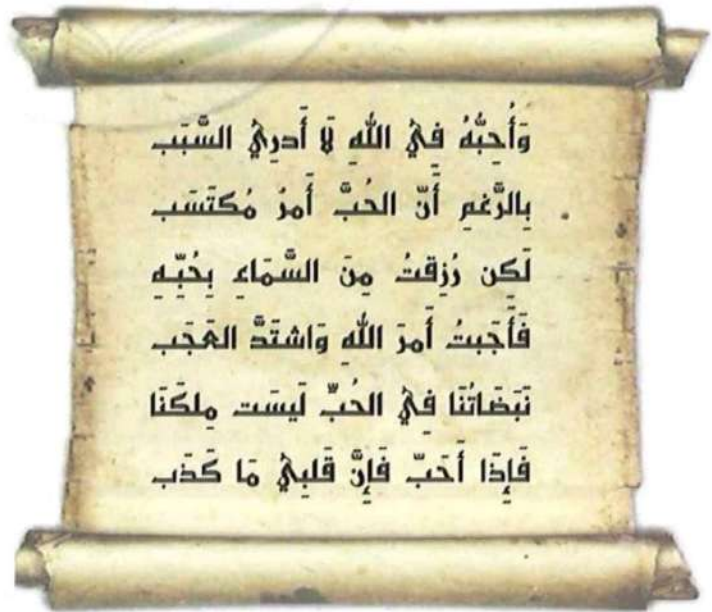 وَأُحِبُّهُ فِيْ اللّٰهِ لَا أَدرِيْ السَّبَب
بِالرَّغمِ أَنّ الحُبَّ أَمرُ مُكتَسَب
لَكِن رُزِقتُ مِنَ السَّمَاءِ بِحُبِّهِ
فَأَجَبتُ أَمرَ اللّٰهِ وَاشتَدَّ العَجَب
نَبَضَاتُنَا فِيْ الحُبِّ لَيسَت مِلكَنَا
فَإِذَا أَحَبّ فَإِنَّ قَلبِيْ مَا كَذَب